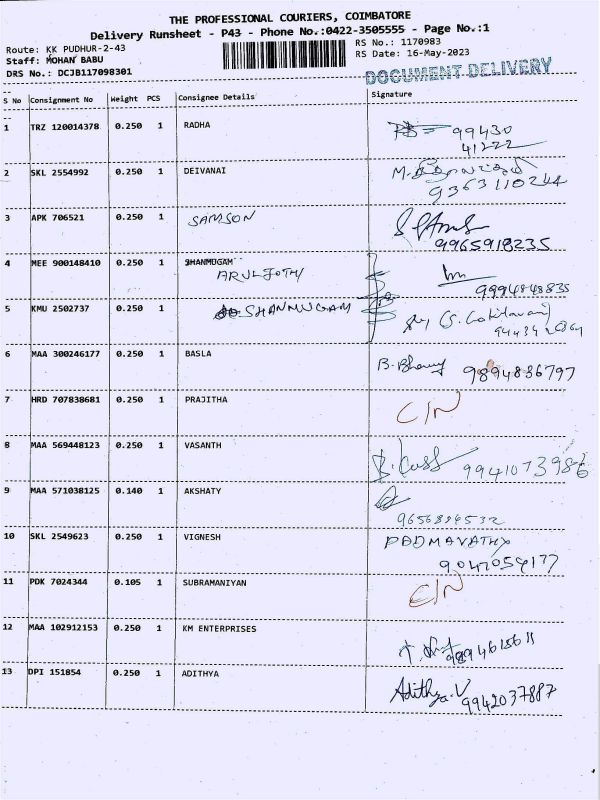 THE PROFESSIONAL COURIERS, COIMBATORE
Delivery Runsheet - P43 - Phone No.:0422-3505555 - Page No.:1
Route: KK PUDHUR-2-43 RS No.: 1170983
Staff: MOHAN BABU RS Date: 16-May-2023
DRS No.: DCJB117098301 DOCUMENT DELIVERY
S No Consignment No Weight PCS Consignee Details Signature
1 TRZ 120014378 0.250 1 RADHA 99430
41222
2 SKL 2554992 0.250 1 DEIVANAI
9363110244
3 APK 706521 0.250 1 SAMSON
9965918235
4 MEE 900148410 0.250 1 SHANMUGAM
ARULJOTHI 9994848835
5 KMU 2502737 0.250 1 SHANMUGAM
6 MAA 300246177 0.250 1 BASLA 9894836797
7 HRD 707838681 0.250 1 PRAJITHA C/N
8 MAA 569448123 0.250 1 VASANTH 9941073986
9 MAA 571038125 0.140 1 AKSHATY
10 SKL 2549623 0.250 1 VIGNESH PADMAVATHY
9047059177
11 PDK 7024344 0.105 1 SUBRAMANIYAN C/N
12 MAA 102912153 0.250 1 KM ENTERPRISES
13 DPI 151854 0.250 1 ADITHYA Adithya.V
9942037887